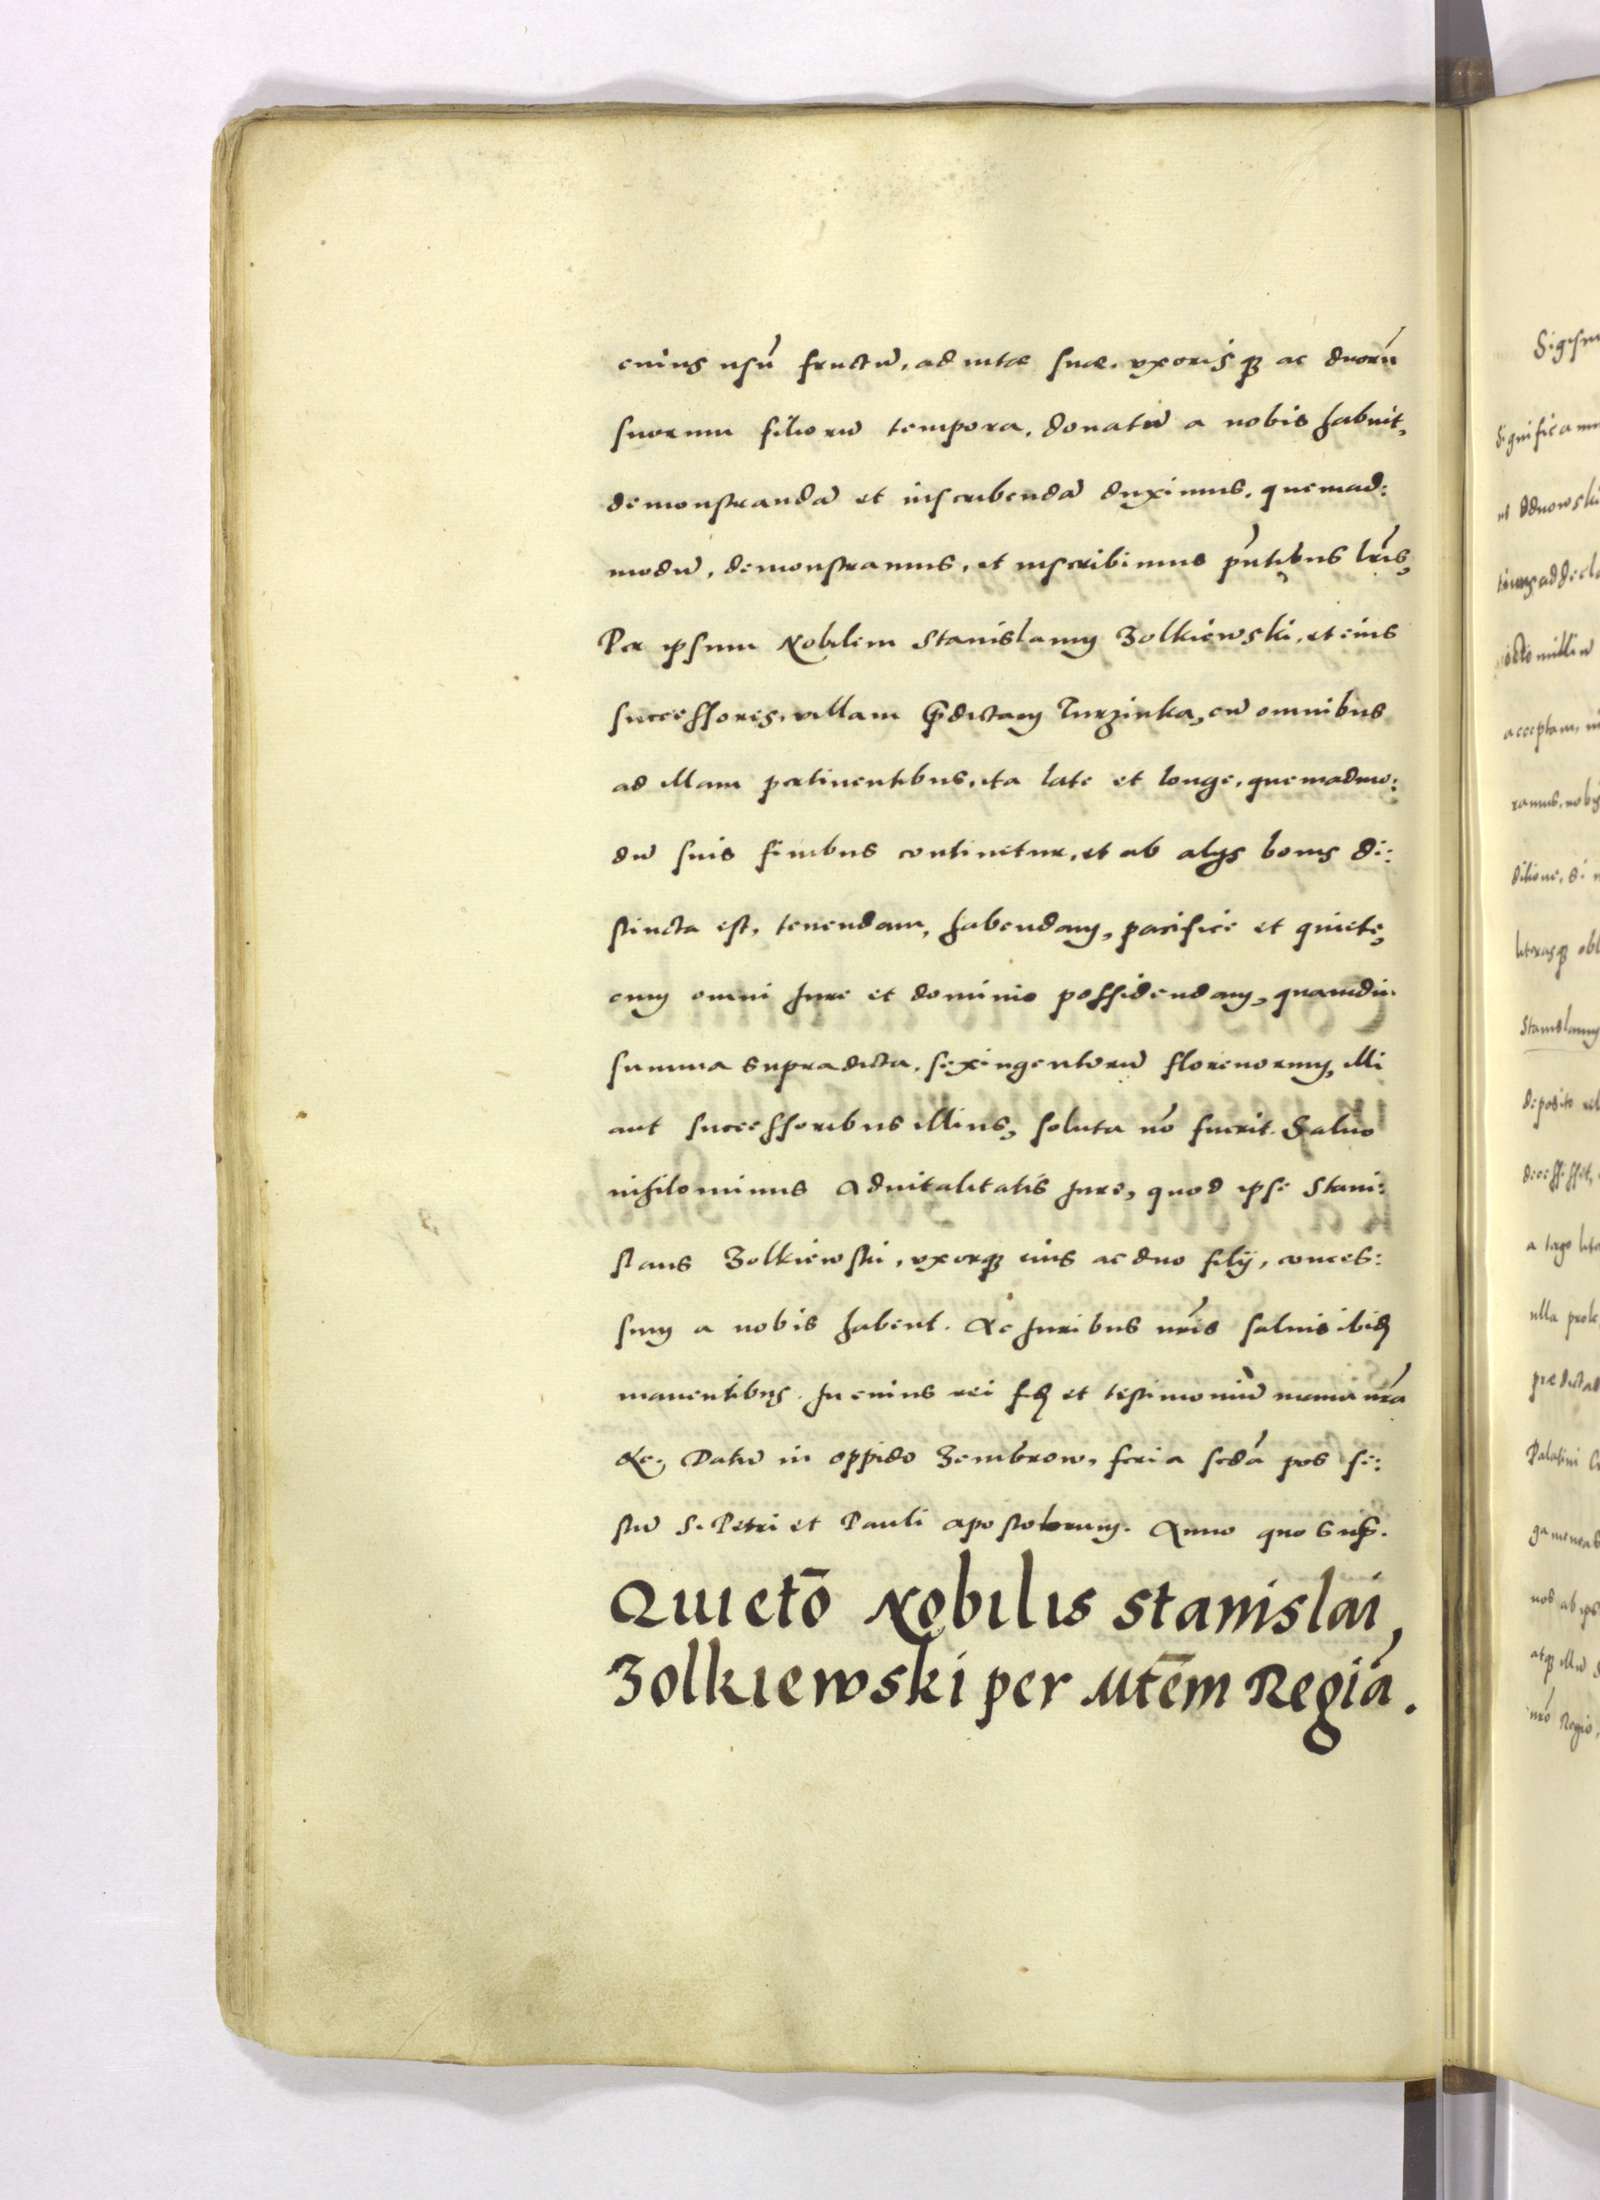 cuius usũ fructũ, ad vitæ suæ, uxorisq; ac duorũ
suorum filiorũ tempora, donatũ a nobis habuit,
demonstrandã et inscribendã duximus, quemad:
modũ, demonstramus, et inscribimus pñtibus lr̃is,
Per ipsum Nobilem Stanislaum Zolkiewski, et eius
successores, villam p̃dictam Turzinka, cũ omnibus
ad illam pertinentibus, ita late et longe, quemadmo:
dũ suis finibus continetur, et ab alijs bonis di:
stincta est, tenendam, habendam, pacifice et quiete,
cum omni Jure et dominio possidendam, quamdiu
summa supradicta, sexingentorũ florenorum, illi
aut successoribus illius, soluta nõ fuerit. Saluo
nihilominus Aduitalitatis Jure, quod ipse Stani:
slaus Zolkiewski, uxorq; eius ac duo filij, conces:
sum a nobis habent. Ac Juribus nr̃is saluis ibid
manentibus. In cuius rei fid et testimoniũ nr̃a
&c. Datũ in oppido Zembrow, feria scdã pos fe:
stũ S. Petri et Pauli apostolorum. Anno quo sup̃.
Quietõ Nobilis Stanislai,
Zolkiewski per Mtẽm Regiã.
Sigism
Significamu
acceptam, in
ramus, nobis
ditione, si n
literasq; obl
Stanislaum
deposito rel
decessisset,
a tergo lite
ulla prole,
prædictas
Palatini C
nos ab ips
atq; illũ
nr̃o Regio,